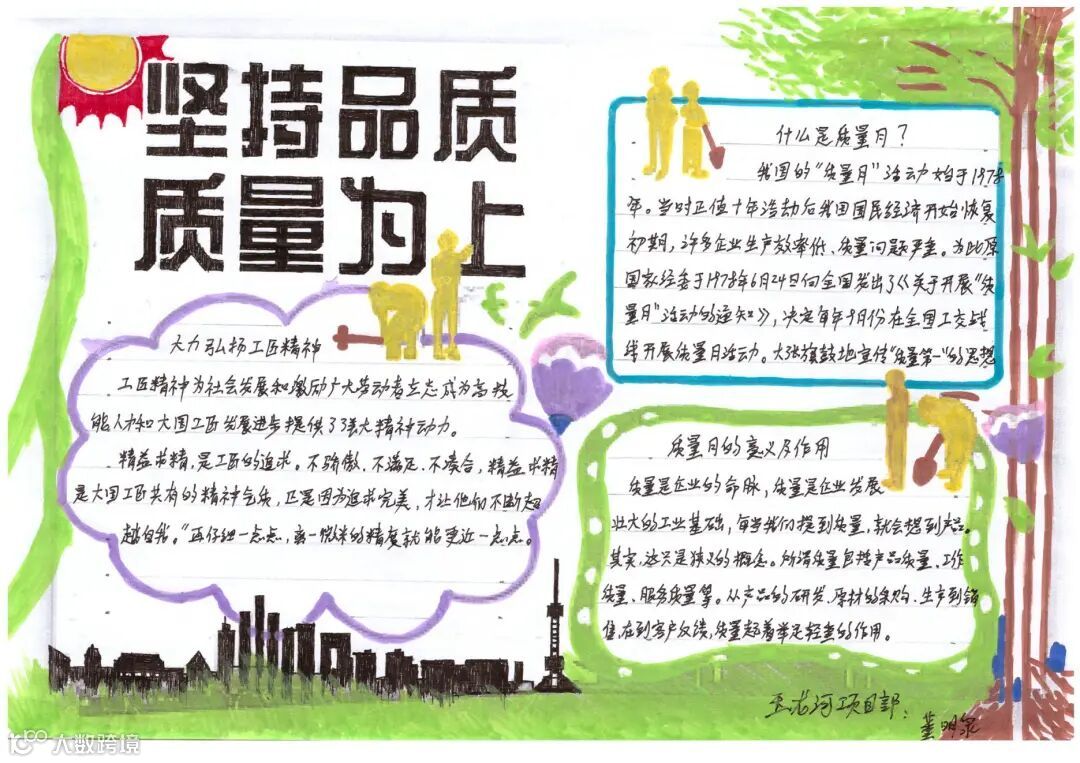 坚持品质
质量为上
大力弘扬工匠精神
工匠精神为社会发展和激励广大劳动者立志成为高技
能人才和大国工匠发展进步提供了强大精神动力。
精益求精,是工匠的追求。不骄傲、不满足、不凑合,精益求精
是大国工匠共有的精神气质,正是因为追求完美,才让他们不断超
越自我。“再仔细一点点,离一微米的精度就能更近一点点。
什么是质量月?
我国的“质量月”活动始于1978
年。当时正值十年浩劫后我国国民经济开始恢复
初期,许多企业生产效率低、质量问题严重。为此原
国家经委于1978年6月24日向全国发出了《关于开展“质
量月”活动的通知》,决定每年9月份在全国工交战
线开展质量月活动。大张旗鼓地宣传“质量第一”的思想
质量月的意义及作用
质量是企业的命脉,质量是企业发展
壮大的工业基础,每当我们提到质量,就会想到产品。
其实,这只是狭义的概念。所谓质量包括产品质量、工作
质量、服务质量等。从产品的研发、原材的采购、生产到销
售,在到客户反馈,质量起着举足轻重的作用。
玉龙河项目部:
董明泉
大数跨境